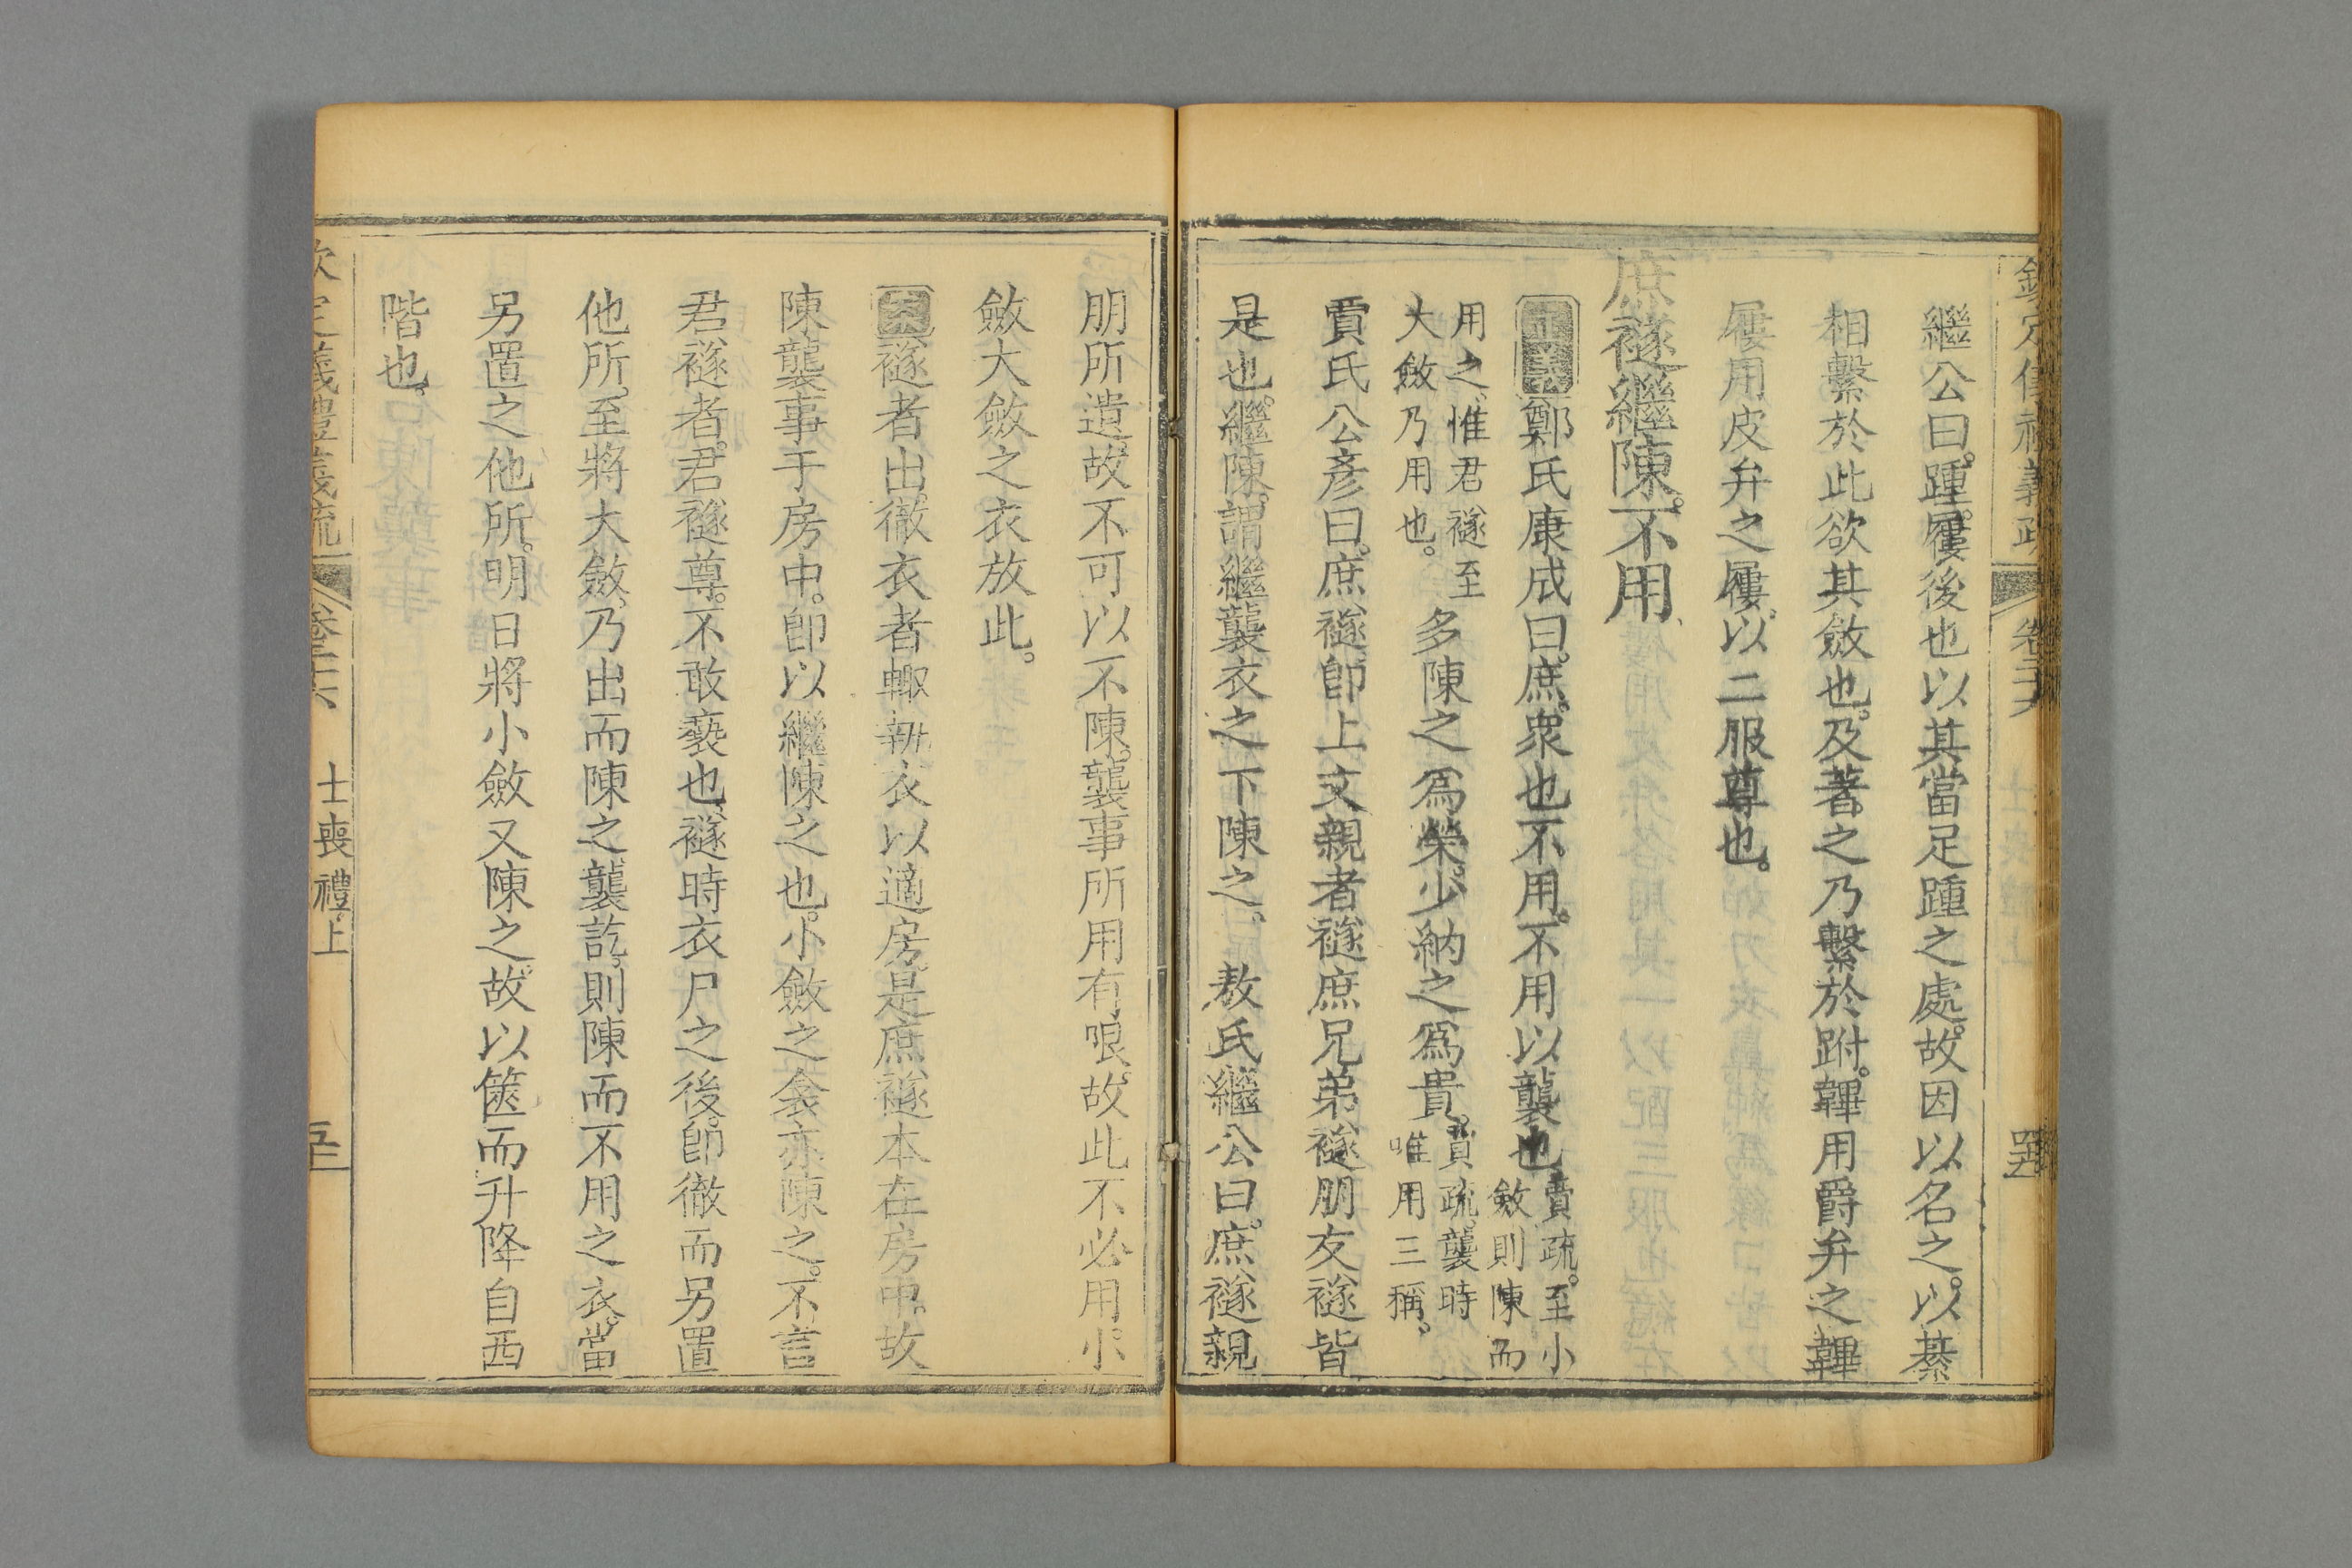 繼公曰。踵。屨後也以其當足踵之處。故因以名之。以綦
相繫於此欲其斂也。及著之乃繫於跗。韠用爵弁之韠
屨用皮弁之屨。以二服尊也。
庶襚繼陳。不用
正義鄭氏康成曰。庶。衆也不用。不用以襲也賈疏。至小
斂則陳而
用之。惟君襚至
大斂乃用也。多陳之爲榮。少納之爲貴。賈疏。襲時
唯用三稱。
賈氏公彥曰。庶襚卽上文親者襚庶兄弟襚朋友襚皆
是也。繼陳。謂繼襲衣之下陳之。 敖氏繼公曰。庶襚親
卷二十六
朋所遺。故不可以不陳。襲事所用有限。故此不必用。小
斂大斂之衣放此。
案襚者出。徹衣者輒執衣以適房。是庶襚本在房中。故
陳襲事于房中。卽以繼陳之也。小斂之衾亦陳之。不言
君襚者。君襚尊。不敢褻也。襚時衣尸之後。卽徹而另置
他所。至將大斂。乃出而陳之。襲訖。則陳而不用之衣。當
另置之他所。明日將小斂又陳之。故以篋而升降自西
階也。
欽定義禮義疏 卷二十六 士喪禮上 五三